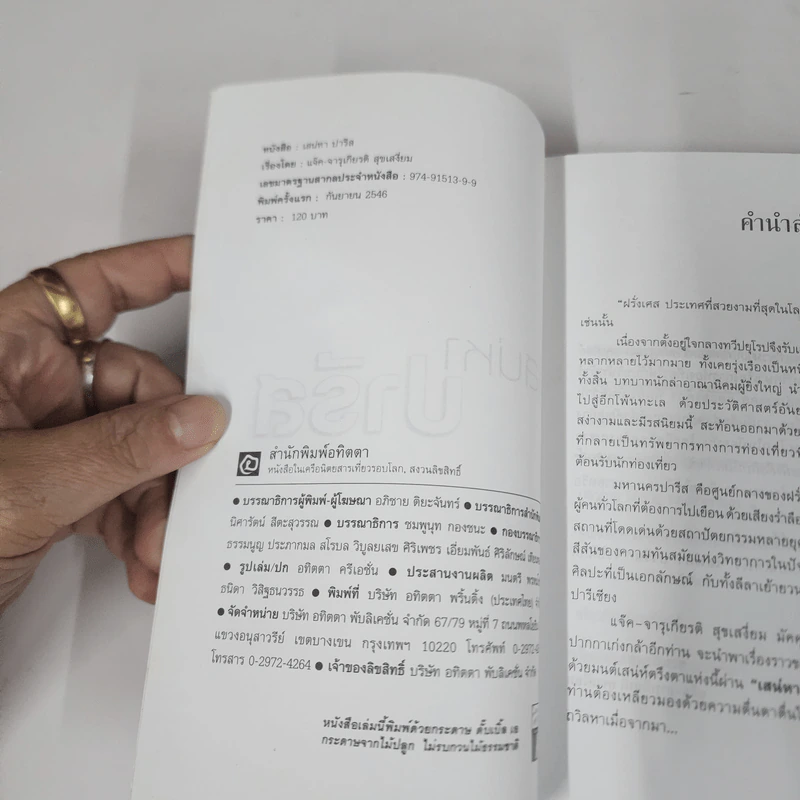 หนังสือ : เสน่หา ปารีส
เรื่องโดย : แจ๊ค-จารุเกียรติ สุขเสงี่ยม
เลขมาตรฐานสากลประจำหนังสือ : 974-91513-9-9
พิมพ์ครั้งแรก : กันยายน 2546
ราคา : 120 บาท
สำนักพิมพ์อทิตตา
หนังสือในเครือนิตยสารเที่ยวรอบโลก, สงวนลิขสิทธิ์
● บรรณาธิการผู้พิมพ์-ผู้โฆษณา อภิชาย ติยะจันทร์ ● บรรณาธิการสำนักพิมพ์
นิศารัตน์ ลีตะสุวรรณ ● บรรณาธิการ ชมพูนุท กองชนะ ● กองบรรณาธิการ
ธรรมนูญ ประภากมล สโรบล วิบูลยเลข ศิริเพชร เอี่ยมพันธ์ ศิริลักษณ์
● รูปเล่ม/ปก อทิตตา ครีเอชั่น ● ประสานงานผลิต มนตรี
ธนิดา วิสิฐธนวรรธ ● พิมพ์ที่ บริษัท อทิตตา พริ้นติ้ง (ประเทศไทย)
● จัดจำหน่าย บริษัท อทิตตา พับลิเคชั่น จำกัด 67/79 หมู่ที่ 7
แขวงอนุสาวรีย์ เขตบางเขน กรุงเทพฯ 10220 โทรศัพท์
โทรสาร 0-2972-4264 ● เจ้าของลิขสิทธิ์ บริษัท อทิตตา พับลิเคชั่น จำกัด
หนังสือเล่มนี้พิมพ์ด้วยกระดาษ ดั๊บเบิ้ล เอ
กระดาษจากไม้ปลูก ไม่รบกวนไม้ธรรมชาติ
คำนำ
"ฝรั่งเศส ประเทศที่สวยงามที่สุดในโล
เช่นนั้น
เนื่องจากตั้งอยู่ใจกลางทวีปยุโรปจึงรับเ
หลากหลายไว้มากมาย ทั้งเคยรุ่งเรืองเป็นหนึ
ทั้งสิ้น บทบาทนักล่าอาณานิคมผู้ยิ่งใหญ่ นำ
ไปสู่อีกโพ้นทะเล ด้วยประวัติศาสตร์อัน
สง่างามและมีรสนิยมนี้ สะท้อนออกมาด้วย
ที่กลายเป็นทรัพยากรทางการท่องเที่ยว
ต้อนรับนักท่องเที่ยว
มหานครปารีส คือศูนย์กลางของฝรั่
ผู้คนทั่วโลกที่ต้องการไปเยือน ด้วยเสียงร่ำลือ
สถานที่โดดเด่นด้วยสถาปัตยกรรมหลายยุค
สีสันของความทันสมัยแห่งวิทยาการในปั
ศิลปะที่เป็นเอกลักษณ์ กับทั้งลีลาเย้ายวน
ปารีเซียง
แจ๊ค-จารุเกียรติ สุขเสงี่ยม มัคค
ปากกาเก่งกล้าอีกท่าน จะนำพาเรื่องราวข
ด้วยมนต์เสน่ห์ตรึงตาแห่งนี้ผ่าน "เสน่หา
ท่านต้องเหลียวมองด้วยความตื่นตาตื่นใ
ถวิลหาเมื่อจากมา...